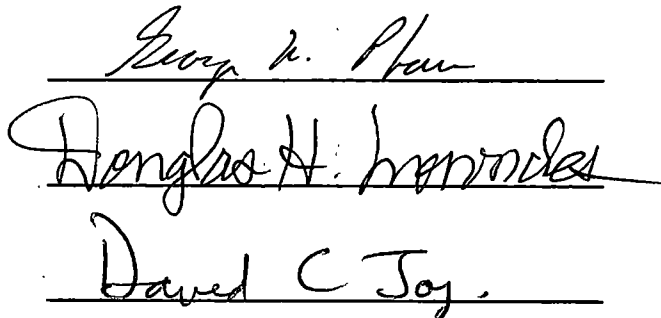 George M. Pharr
Douglas H. Lowndes
David C Joy.